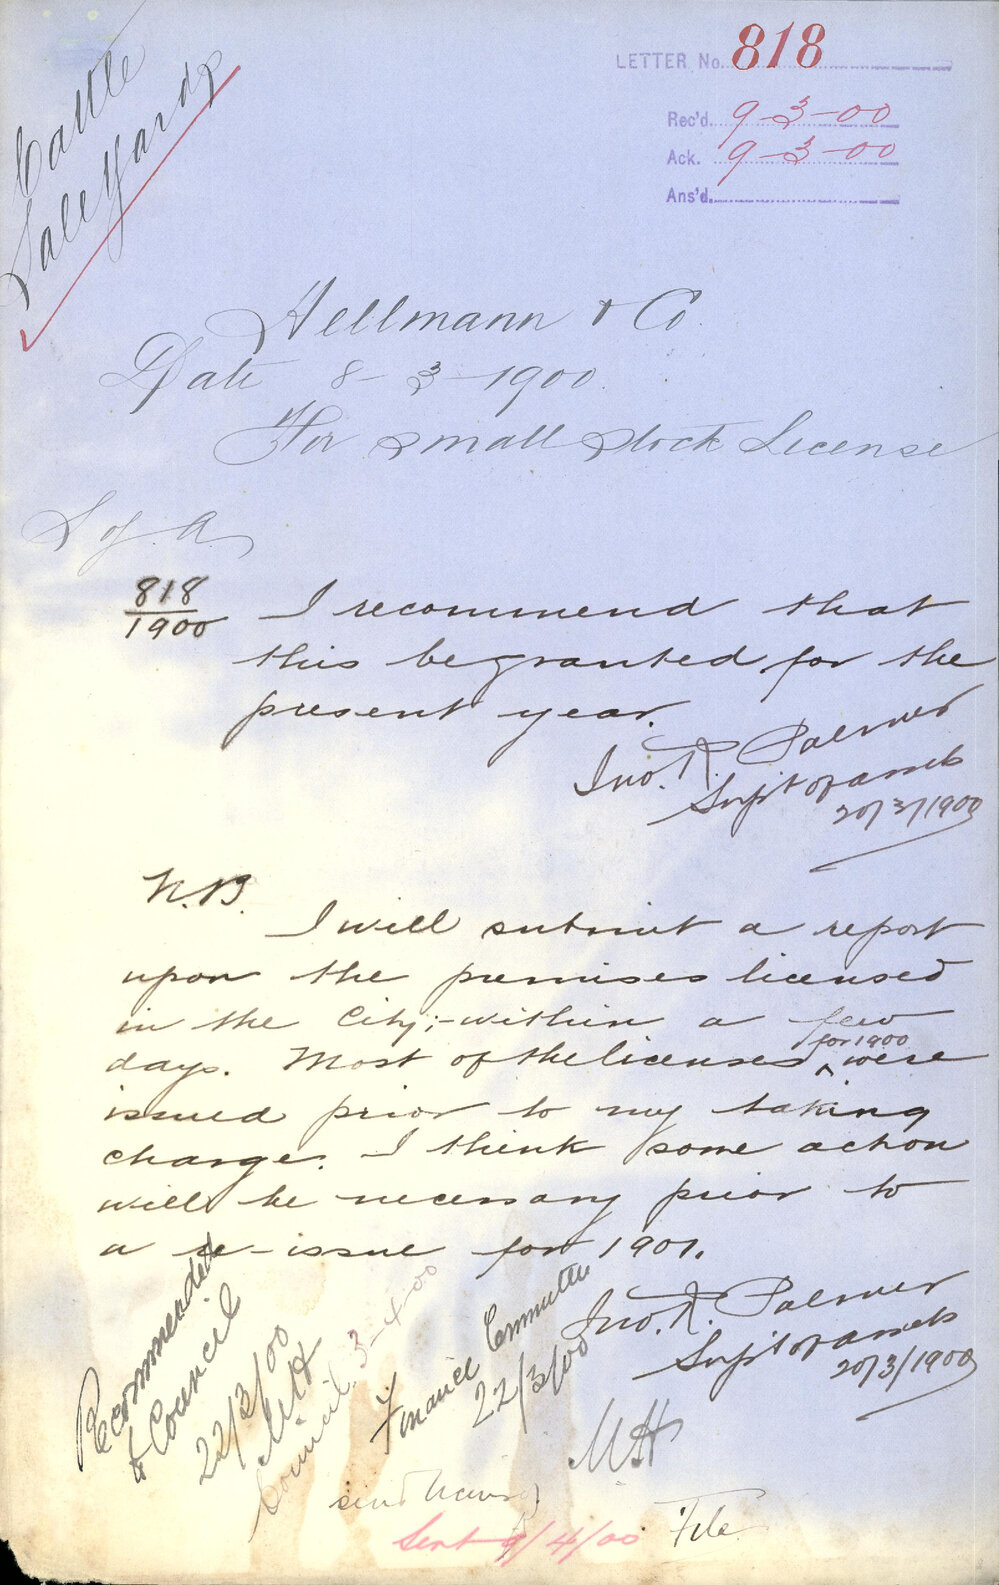 Cattle
Sale Yards
LETTER No. 818
Rec'd. 9-3-00
Ack. 9-3-00
Ans'd.
Hellmann & Co.
Date 8-3-1900.
For Small Stock License
S of A.
818
1900
I recommend that
this be granted for the
present year.
Jno. R. Palmer
Supt of assets
20/3/1900
N.B.
I will submit a report
upon the premises licensed
in the City;- within a few
days. Most of the licenses ^ for 1900 were
issued prior to my taking
charge. I think some action
will be necessary prior to
a re-issue for 1901.
Jno. R. Palmer
Supt of assets
20/3/1900
Recommended
to Council
22/3/00
MH
Council 3-4-00
Finance Committee
22/3/00
MH
send
Sent 9/4/00
File